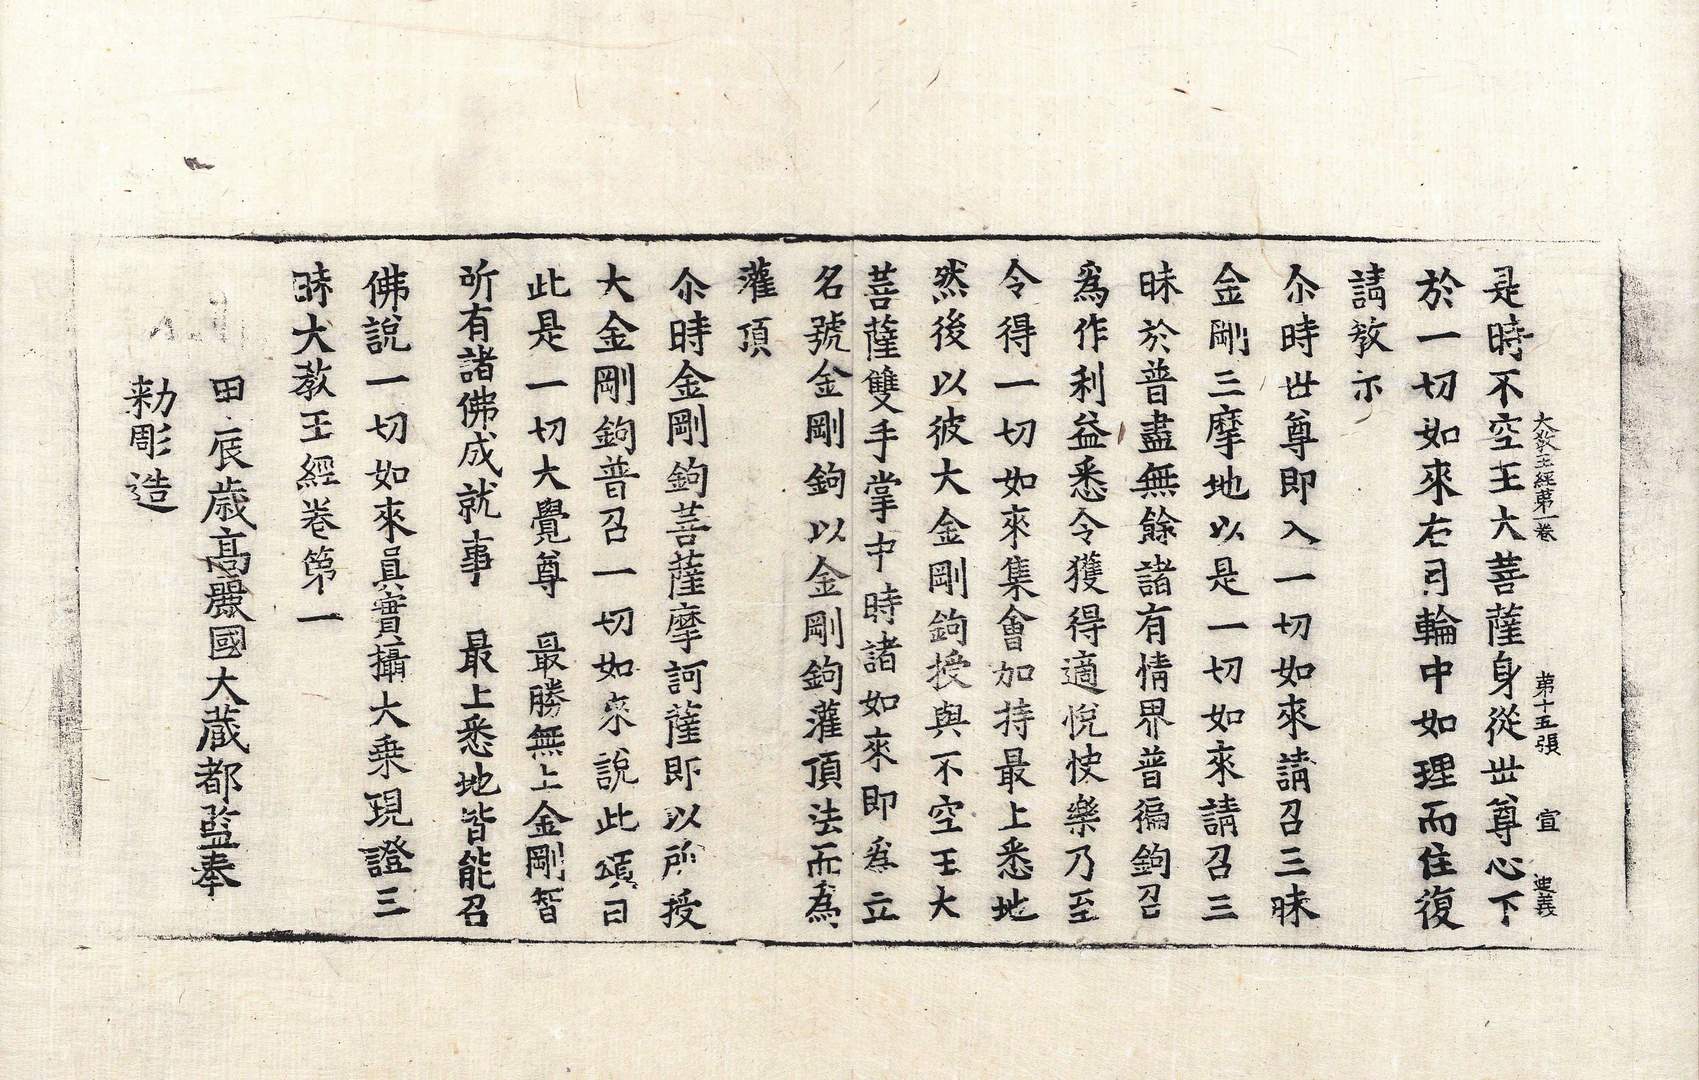 大敎王經第一卷 第十五張 宣 迪義
是時不空王大菩薩身從世尊心下
於一切如來右月輪中如理而住復
請敎示
尒時世尊即入一切如來請召三昧
金剛三摩地以是一切如來請召三
昧於普盡無餘諸有情界普徧鉤召
爲作利益悉令獲得適悅快樂乃至
令得一切如來集會加持最上悉地
然後以彼大金剛鉤授與不空王大
菩薩雙手掌中時諸如來即爲立
名號金剛鉤以金剛鉤灌頂法而爲
灌頂
尒時金剛鉤菩薩摩訶薩即以所授
大金剛鉤普召一切如來說此頌曰
此是一切大覺尊 最勝無上金剛智
所有諸佛成就事 最上悉地皆能召
佛說一切如來眞實攝大乘現證三
昧大敎王經卷第一
田辰歲高麗國大藏都監奉
勑彫造